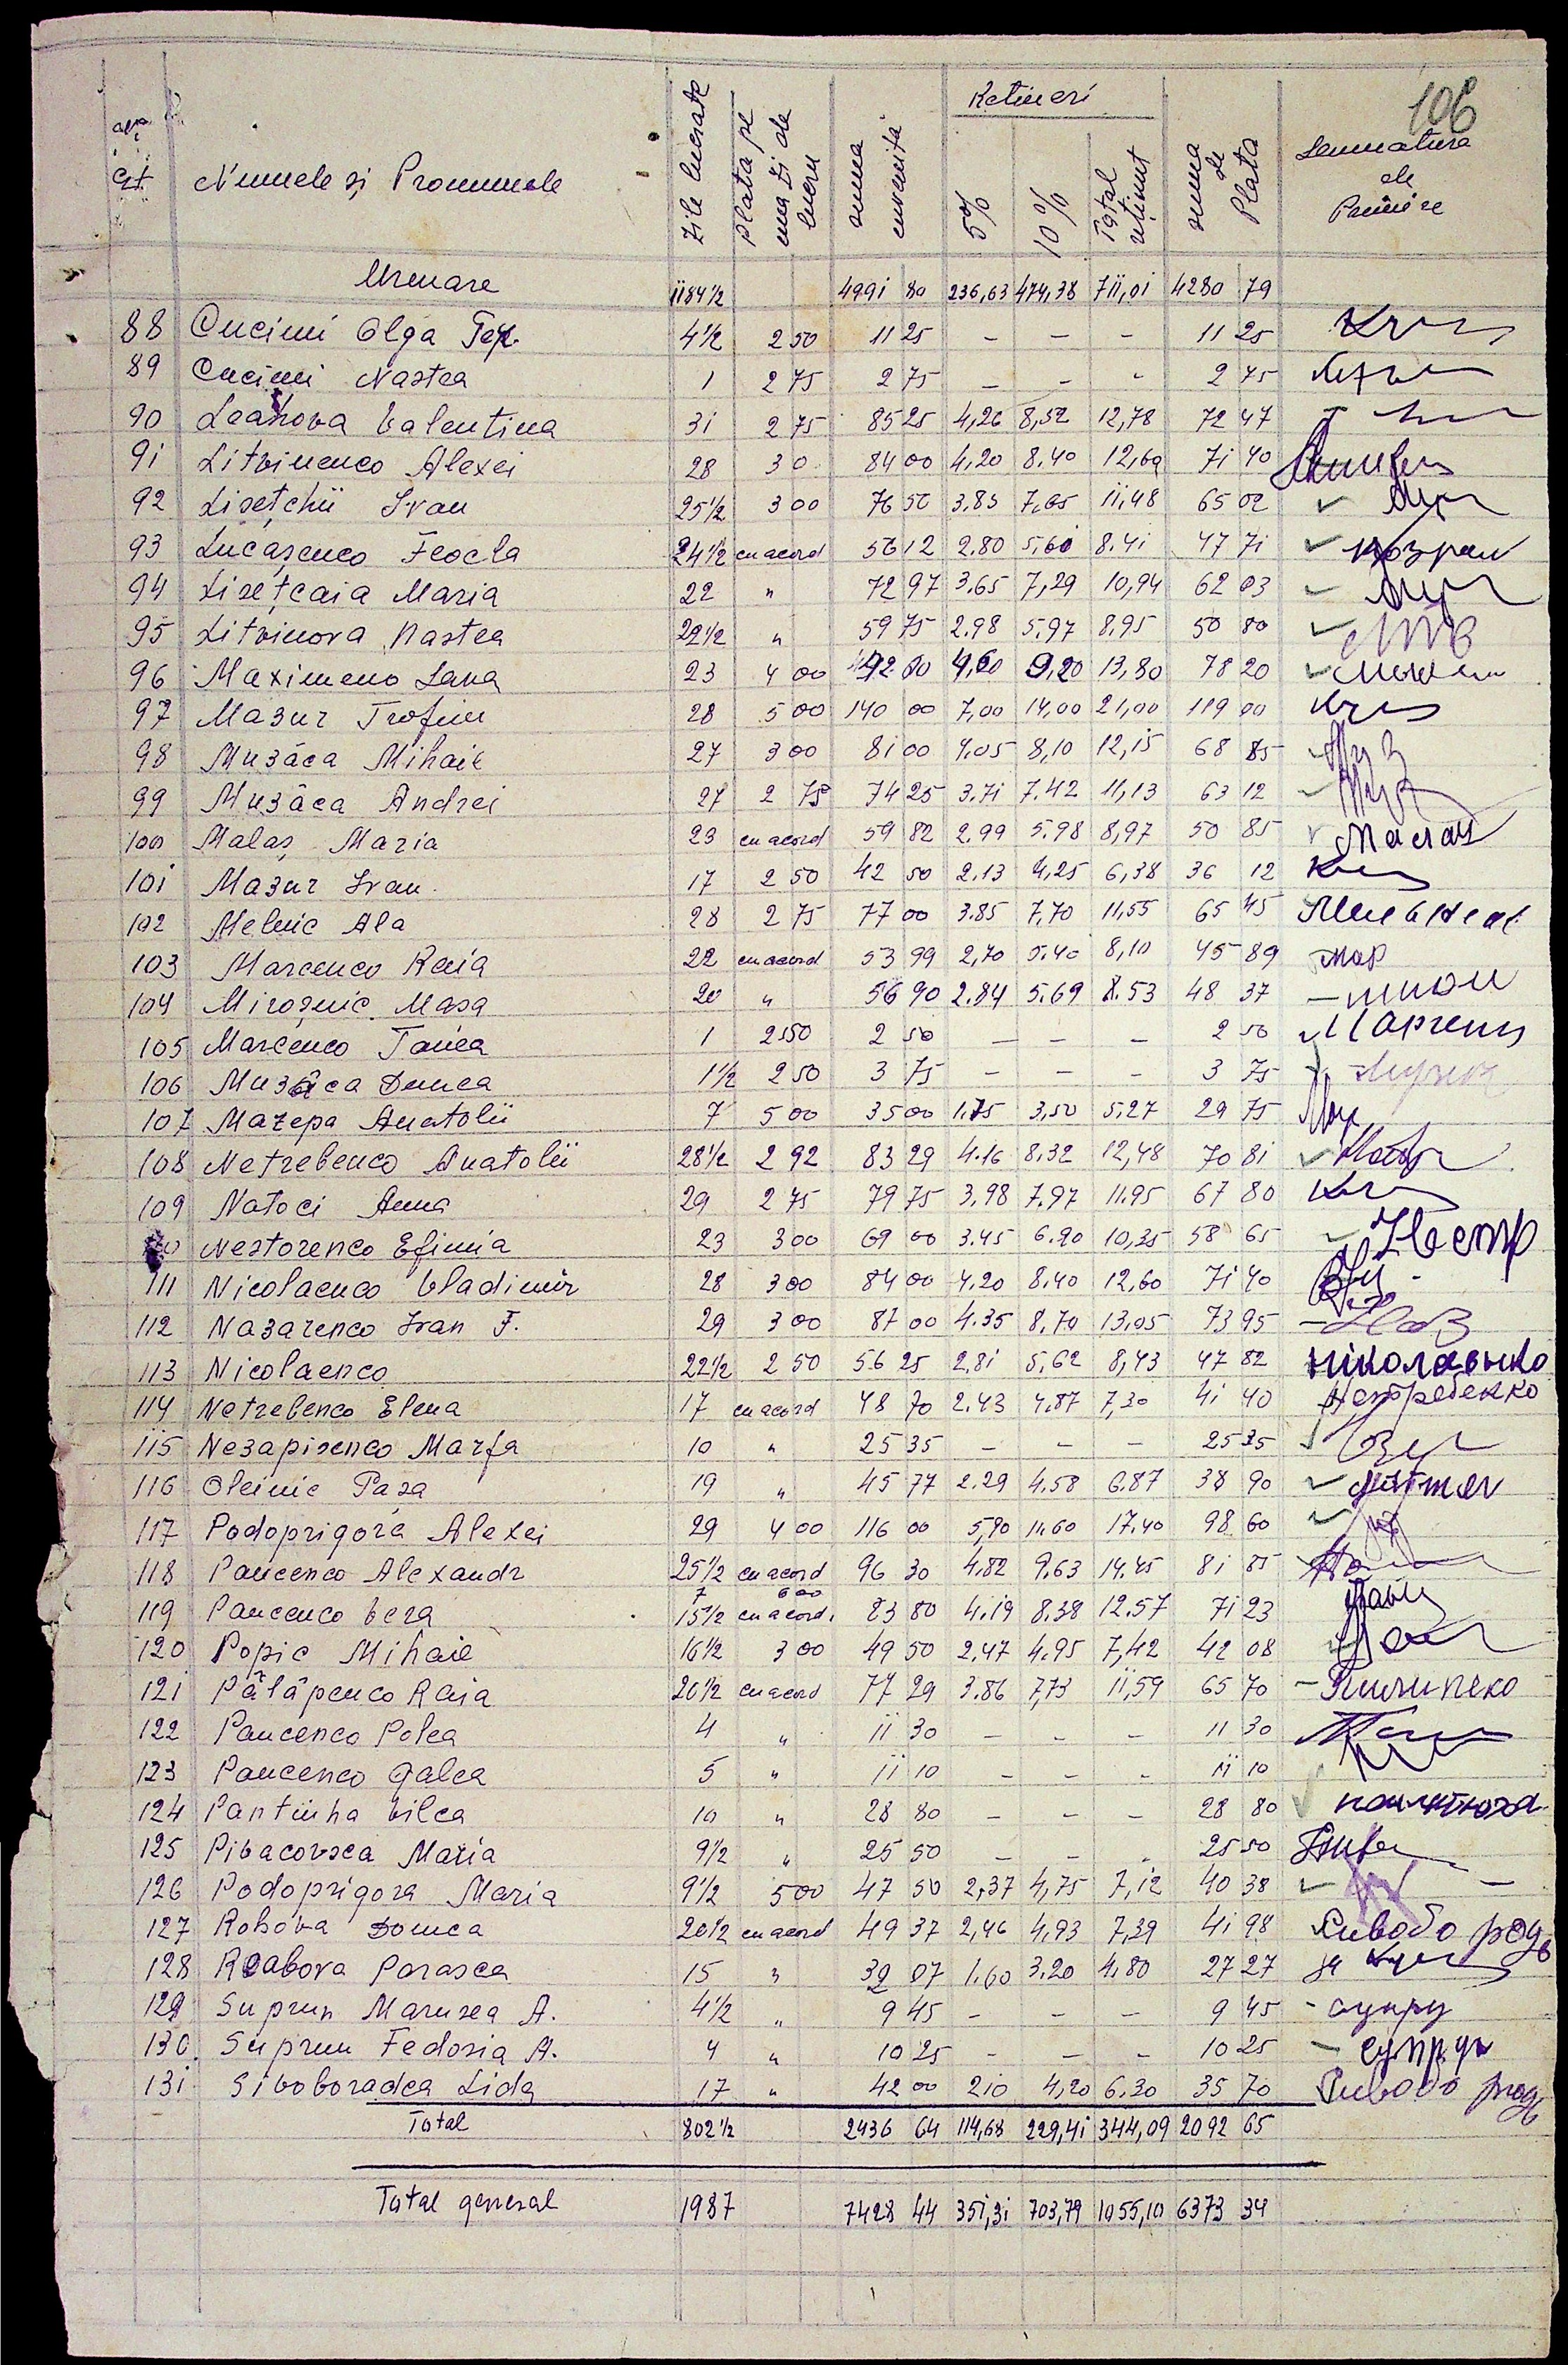 106
Nr. crt. Numele și Pronumele Zile lucrate Plata pe una zi de lucru suma cuvenită Rețineri 5% 10% Total reținut suma de Plata Semnatura de Primire
Urmare 1184½ 4991 80 236,63 474,38 711,01 4280 79
88 Cucimi Olga 4½ 2 50 11 25 – – – 11 25
89 Cucimi Nastea 1 2 75 2 75 – – – 2 75
90 Leahova Valentina 31 2 75 85 25 4,26 8,52 12,78 72 47
91 Litvinenco Alexei 28 3 0 84 00 4,20 8.40 12,60 71 40
92 Lisețchii Ivan 25½ 3 00 76 50 3.83 7,65 11,48 65 02
93 Lucașenco Feocla 24½ cu acord 56 12 2.80 5,60 8.41 47 71
94 Lisețcaia Maria 22 " 72 97 3.65 7,29 10,94 62 03
95 Litvinova Nastea 29½ " 59 75 2.98 5.97 8.95 50 80
96 Maximeno Sava 23 4 00 92 00 4,60 9,20 13,80 78 20
97 Mazur Trofim 28 5 00 140 00 7,00 14,00 21,00 119 00
98 Muzâca Mihail 27 3 00 81 00 4.05 8,10 12,15 68 85
99 Muzâca Andrei 27 2 75 74 25 3.71 7.42 11,13 63 12
100 Malaș Maria 23 cu acord 59 82 2.99 5.98 8,97 50 85
101 Mazur Ivan 17 2 50 42 50 2.13 4,25 6,38 36 12
102 Melnic Ala 28 2 75 77 00 3.85 7,70 11,55 65 45
103 Marcenco Raia 22 cu acord 53 99 2,70 5.40 8,10 45 89 мар
104 Miroșnic Mașa 20 " 56 90 2.84 5.69 8.53 48 37
105 Marcenco Tanea 1 2 50 2 50 – – – 2 50
106 Muzâca Dunea 1½ 2 50 3 75 – – – 3 75
107 Mazepa Anatolii 7 5 00 35 00 1.75 3,50 5.27 29 75
108 Netrebenco Anatolii 28½ 2 92 83 29 4.16 8.32 12,48 70 81
109 Natoci Anna 29 2 75 79 75 3.98 7.97 11.95 67 80
110 Nestorenco Efimia 23 3 00 69 00 3.45 6.90 10,35 58 65 Нестр
111 Nicolaenco Vladimir 28 3 00 84 00 4.20 8.40 12,60 71 40
112 Nazarenco Ivan F. 29 3 00 87 00 4.35 8,70 13,05 73 95 Наз
113 Nicolaenco 22½ 2 50 56 25 2,81 5,62 8,43 47 82 Ніколаенко
114 Netrebenco Elena 17 cu acord 48 70 2.43 4,87 7,30 41 40 Нетребенко
115 Nezapisenco Marfa 10 " 25 35 – – – 25 35
116 Oleinic Pașa 19 " 45 77 2.29 4,58 6.87 38 90
117 Podoprigora Alexei 29 4 00 116 00 5,80 11.60 17.40 98 60
118 Pancenco Alexandr 25½ cu acord 96 30 4,82 9,63 14.45 81 85
7 6 00
119 Pancenco Vera 15½ cu acord. 83 80 4.19 8.38 12.57 71 23
120 Popic Mihail 16½ 3 00 49 50 2,47 4.95 7,42 42 08
121 Pălăpenco Raia 26½ cu acord 77 29 3.86 7,73 11,59 65 70
122 Pancenco Polea 4 " 11 30 – – – 11 30
123 Pancenco Galea 5 " 11 10 – – – 11 10
124 Pantiuha Vilea 10 " 28 80 – – – 28 80
125 Pivacovsca Maria 9½ " 25 50 – – – 25 50
126 Podoprigora Maria 9½ 5 00 47 50 2,37 4,75 7,12 40 38
127 Rohova Domca 20½ cu acord 49 37 2,46 4,93 7,39 41 98
128 Reabova Parasca 15 " 32 07 1.60 3.20 4,80 27 27
129 Suprun Marusea A. 4½ " 9 45 – – – 9 45 супру
130 Suprun Fedosia A. 4 " 10 25 – – – 10 25 супрун
131 Sivoboradca Lida 17 " 42 00 2 10 4,20 6.30 35 70
Total 802½ 2436 64 114,68 229,41 344,09 2092 65
Total general 1987 7428 44 351,31 703,79 1055,10 6373 34